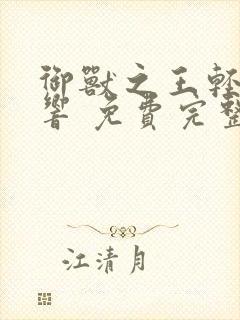 御獸之王輕
響 免費完整
江清月